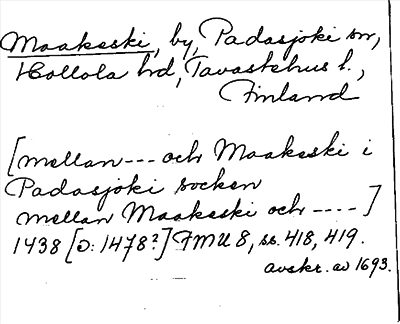 Maakeski, by, Padasjoki sn,
Hollola hd, Tavastehus l.,
Finland
[mellan --- och Maakeski i
Padasjoki socken
mellan Maakeski och ----]
1438 [ɔ: 1478?] FMU 8, ss. 418, 419.
avskr. av 1693.